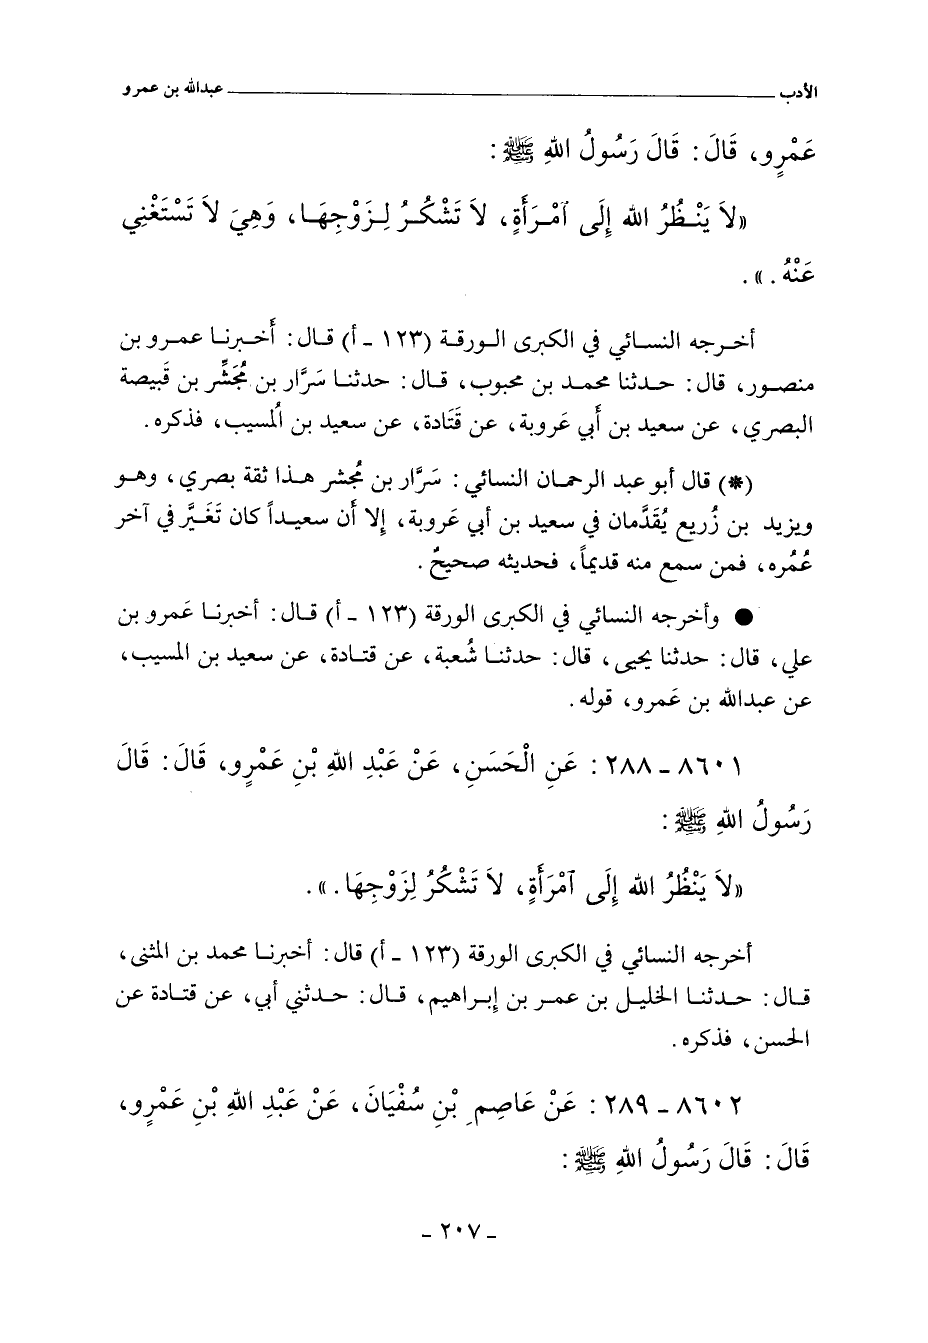 الأدب ــــــــــ عبدالله بن عمرو
عَمْرٍو، قَالَ: قَالَ رَسُولُ اللهِ ﷺ:
«لاَ يَنْظُرُ الله إِلَى ٱمْرَأَةٍ، لاَ تَشْكُرُ لِزَوْجِهَا، وَهِيَ لاَ تَسْتَغْنِي
عَنْهُ.».
أخرجه النسائي في الكبرى الورقة (١٢٣ - أ) قال: أَخبرنا عمرو بن
منصور، قال: حدثنا محمد بن محبوب، قال: حدثنا سَرَّار بن مُجَشِّر بن قَبيصة
البصري، عن سعيد بن أَبي عَروبة، عن قَتَادة، عن سعيد بن اُلمسيب، فذكره.
(*) قال أبو عبد الرحمان النسائي: سَرَّار بن مُجشر هذا ثقة بصري، وهو
ويزيد بن زُريع يُقَدَّمان في سعيد بن أبي عَروبة، إلا أن سعيداً كان تَغَيَّر في آخر
عُمُره، فمن سمع منه قديماً، فحديثه صحيحٌ.
● وأخرجه النسائي في الكبرى الورقة (١٢٣ - أ) قال: أخبرنا عَمرو بن
علي، قال: حدثنا يحيى، قال: حدثنا شُعبة، عن قتادة، عن سعيد بن المسيب،
عن عبدالله بن عَمرو، قوله.
٨٦٠١ - ٢٨٨: عَنِ الْحَسَنِ، عَنْ عَبْدِ اللهِ بْنِ عَمْرٍو، قَالَ: قَالَ
رَسُولُ اللهِ ﷺ:
«لاَ يَنْظُرُ الله إِلَى ٱمْرَأَةٍ، لاَ تَشْكُرُ لِزَوْجِهَا.».
أخرجه النسائي في الكبرى الورقة (١٢٣ - أ) قال: أخبرنا محمد بن المثنى،
قال: حدثنا الخليل بن عمر بن إبراهيم، قال: حدثني أبي، عن قتادة عن
الحسن، فذكره.
٨٦٠٢ - ٢٨٩: عَنْ عَاصِمِ بْنِ سُفْيَانَ، عَنْ عَبْدِ اللهِ بْنِ عَمْرٍو،
قَالَ: قَالَ رَسُولُ اللهِ ﷺ:
- ٢٠٧ -